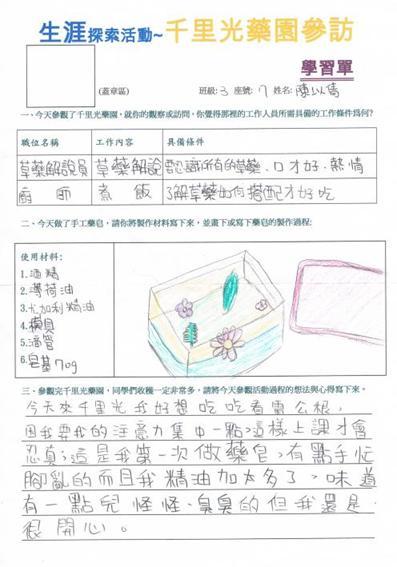 生涯探索活動~千里光藥園參訪
學習單
(蓋章區)
班級:3 座號:7 姓名:陳以
一、今天參觀了千里光藥園,就你的觀察或訪問,你覺得那裡的工作人員所需具備的工作條件為何?
職位名稱 工作內容 具備條件
草藥解說員 草藥解說 認識所有的草藥、口才好、熱情
廚師 煮飯 了解草藥如何搭配才好吃
二、今天做了手工藥皂,請你將製作材料寫下來,並畫下或寫下藥皂的製作過程:
使用材料:
1.酒精
2.薄荷油
3.尤加利精油
4.模具
5.滴管
6.皂基70g
三、參觀完千里光藥園,同學們收穫一定非常多,請將今天參觀活動過程的想法與心得寫下來。
今天來千里光我好想吃吃看雷公根,
因我要我的注意力集中一點,這樣上課才會
忍真;這是我第一次做藥皂,有點手忙
腳亂的而且我精油加太多了,味道
有一點兒怪怪、臭臭的但我還是
很開心。